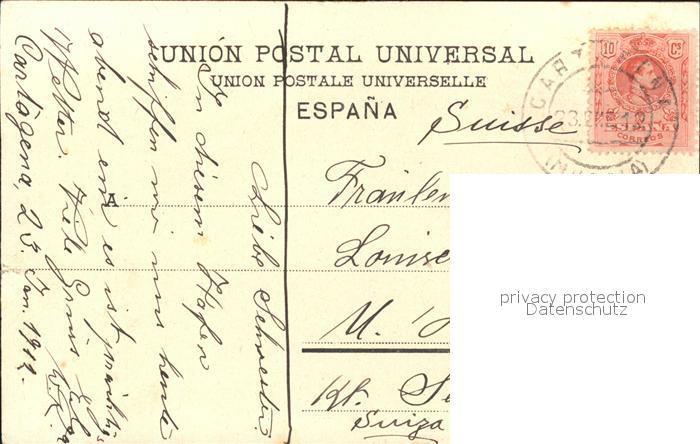 UNIÓN POSTAL UNIVERSAL
UNION POSTALE UNIVERSELLE
ESPAÑA
Suisse
10 Cs
CORREOS
CARTAGENA
(MURCIA)
A.
Fräulein
Louise
U.
Kt. S
Suiza
Liebe Schwester,
In diesem Hafen
schiffen wir uns heute
abend ein, es ist prächtig
Wetter. Viele Grüsse
Cartagena, 23. Jan. 1912.
privacy protection
Datenschutz